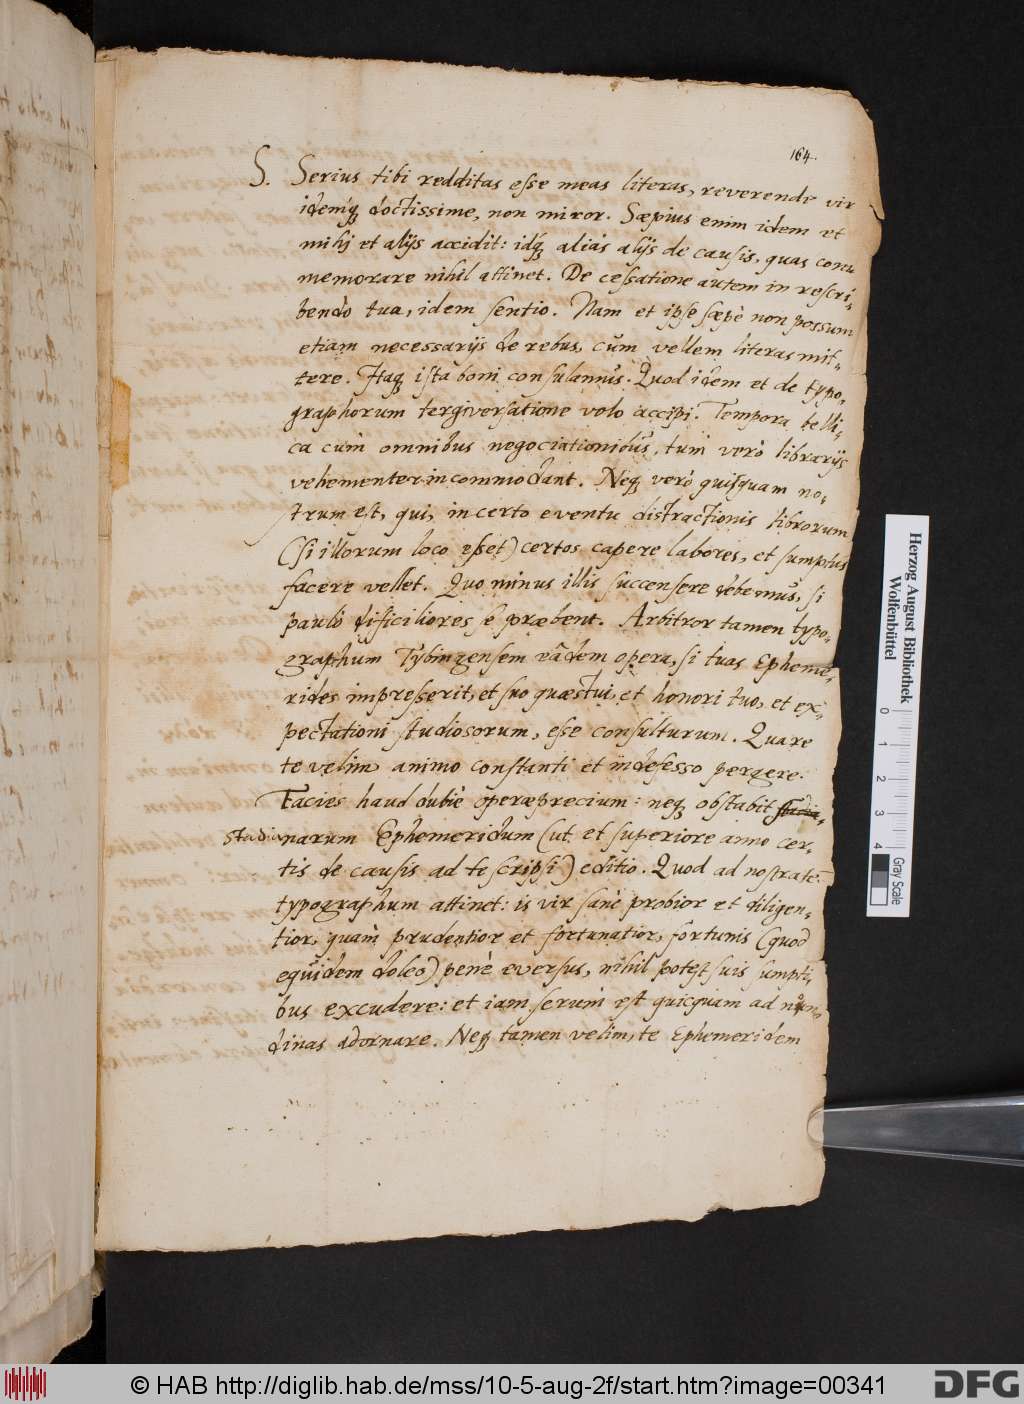 164.
S. Serius tibi redditas esse meas literas, reverende vir
idemq́ꝫ doctissime, non miror. Sæpius enim idem et
mihi et alijs accidit: idq́ꝫ aliàs alijs de causis, quas com
memorare nihil attinet. De cessatione autem in rescri-
bendo tua, idem sentio. Nam et ipse sæpè non possum
etiam necessarijs de rebus, cùm vellem literas mit-
tere. Itaqꝫ ista boni consulamus. Quod idem et de typo-
graphorum tergiversatione volo accipi. Tempora belli-
ca cùm omnibus negociationibus, tùm verò librarijs
vehementer incommodant. Neqꝫ verò quisquam no-
strum est, qui, incerto eventu distractionis librorum
(si illorum loco esset) certos capere labores, et sumptus
facere vellet. Quo minus illis succensere debemus, si
paulò dificiliores se præbent. Arbitror tamen typo-
graphum Tybingensem eâdem opera, si tuas Epheme-
rides impresserit, et suo quæstui, et honori tuo, et ex-
pectationi studiosorum, esse consulturum. Quare
te velim animo constanti et indefesso pergere.
Facies haud dubiè operæprecium: neqꝫ obstabit stadia-
stadianarum Ephemeridum (ut et superiore anno cer-
tis de causis ad te scripsi) editio. Quod ad nostratē
typographum attinet: is vir sanè probior et diligen-
tior, quàm prudentior et fortunatior, fortunis (quod
equidem doleo) penè eversus, nihil potest suis sumpti-
bus excudere: et iam serum est quicquam ad nun-
dinas adornare. Neqꝫ tamen velim, te Ephemeridem
Herzog August Bibliothek
Wolfenbüttel
0 1 2 3 4
Gray Scale
© HAB http://diglib.hab.de/mss/10-5-aug-2f/start.htm?image=00341
DFG